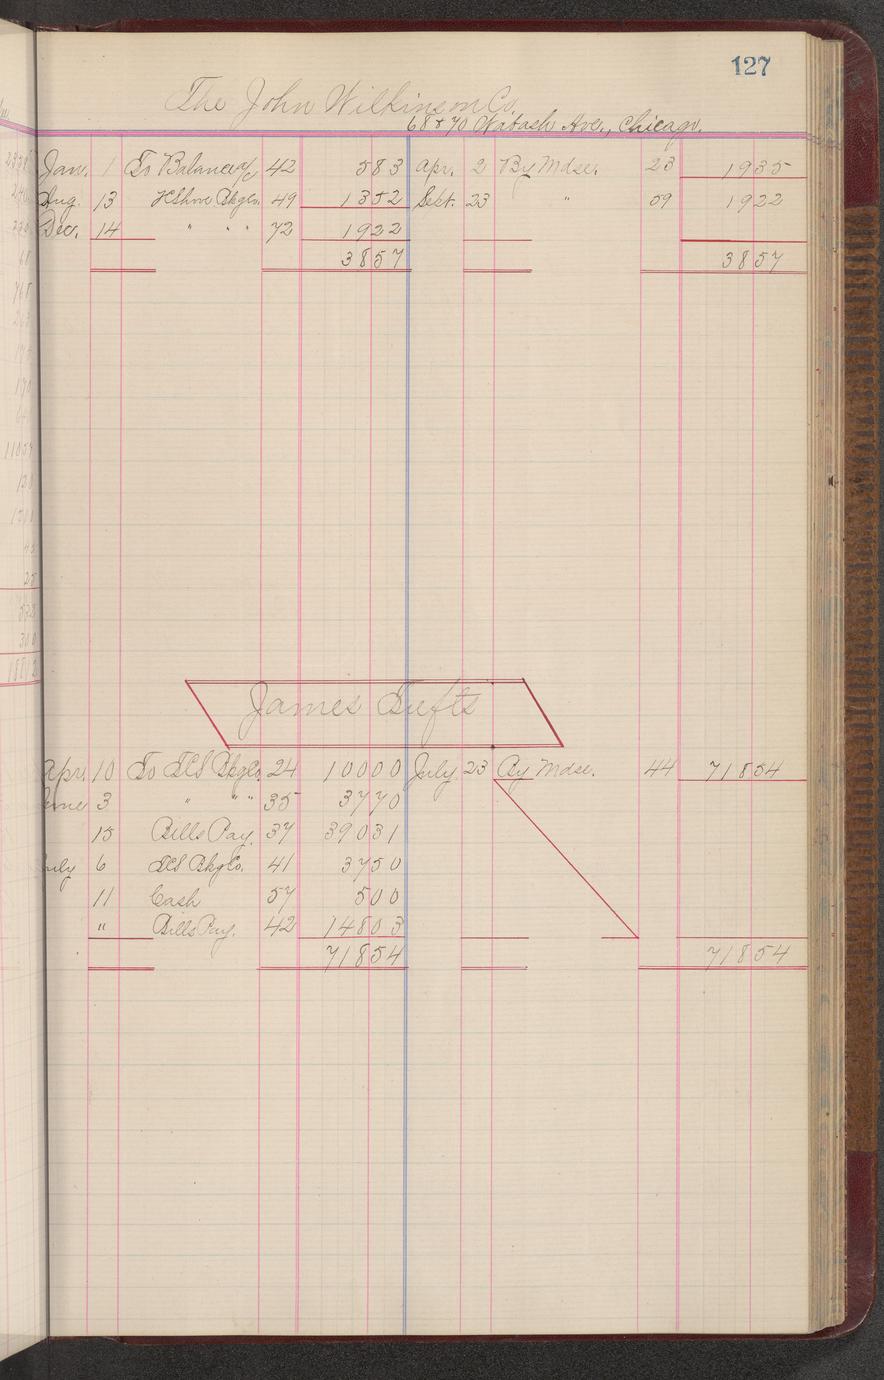 127
The John Wilkinson Co.
68 & 70 Wabash Ave., Chicago.
Jan. 1 To Balance a/c 42 583 Apr. 2 By Mdse. 23 1935
Aug. 13 Bkg Co. 49 1352 Sept. 23 " 59 1922
Dec. 14 " " " 72 1922
3857 3857
James Tufts
Apr. 10 To Bkg Co. 24 10000 July 23 By Mdse. 44 71854
June 3 " " " 35 3770
15 Bills Pay. 37 39031
July 6 Bkg Co. 41 3750
11 Cash 57 500
" Bills Pay. 42 14803
71854 71854